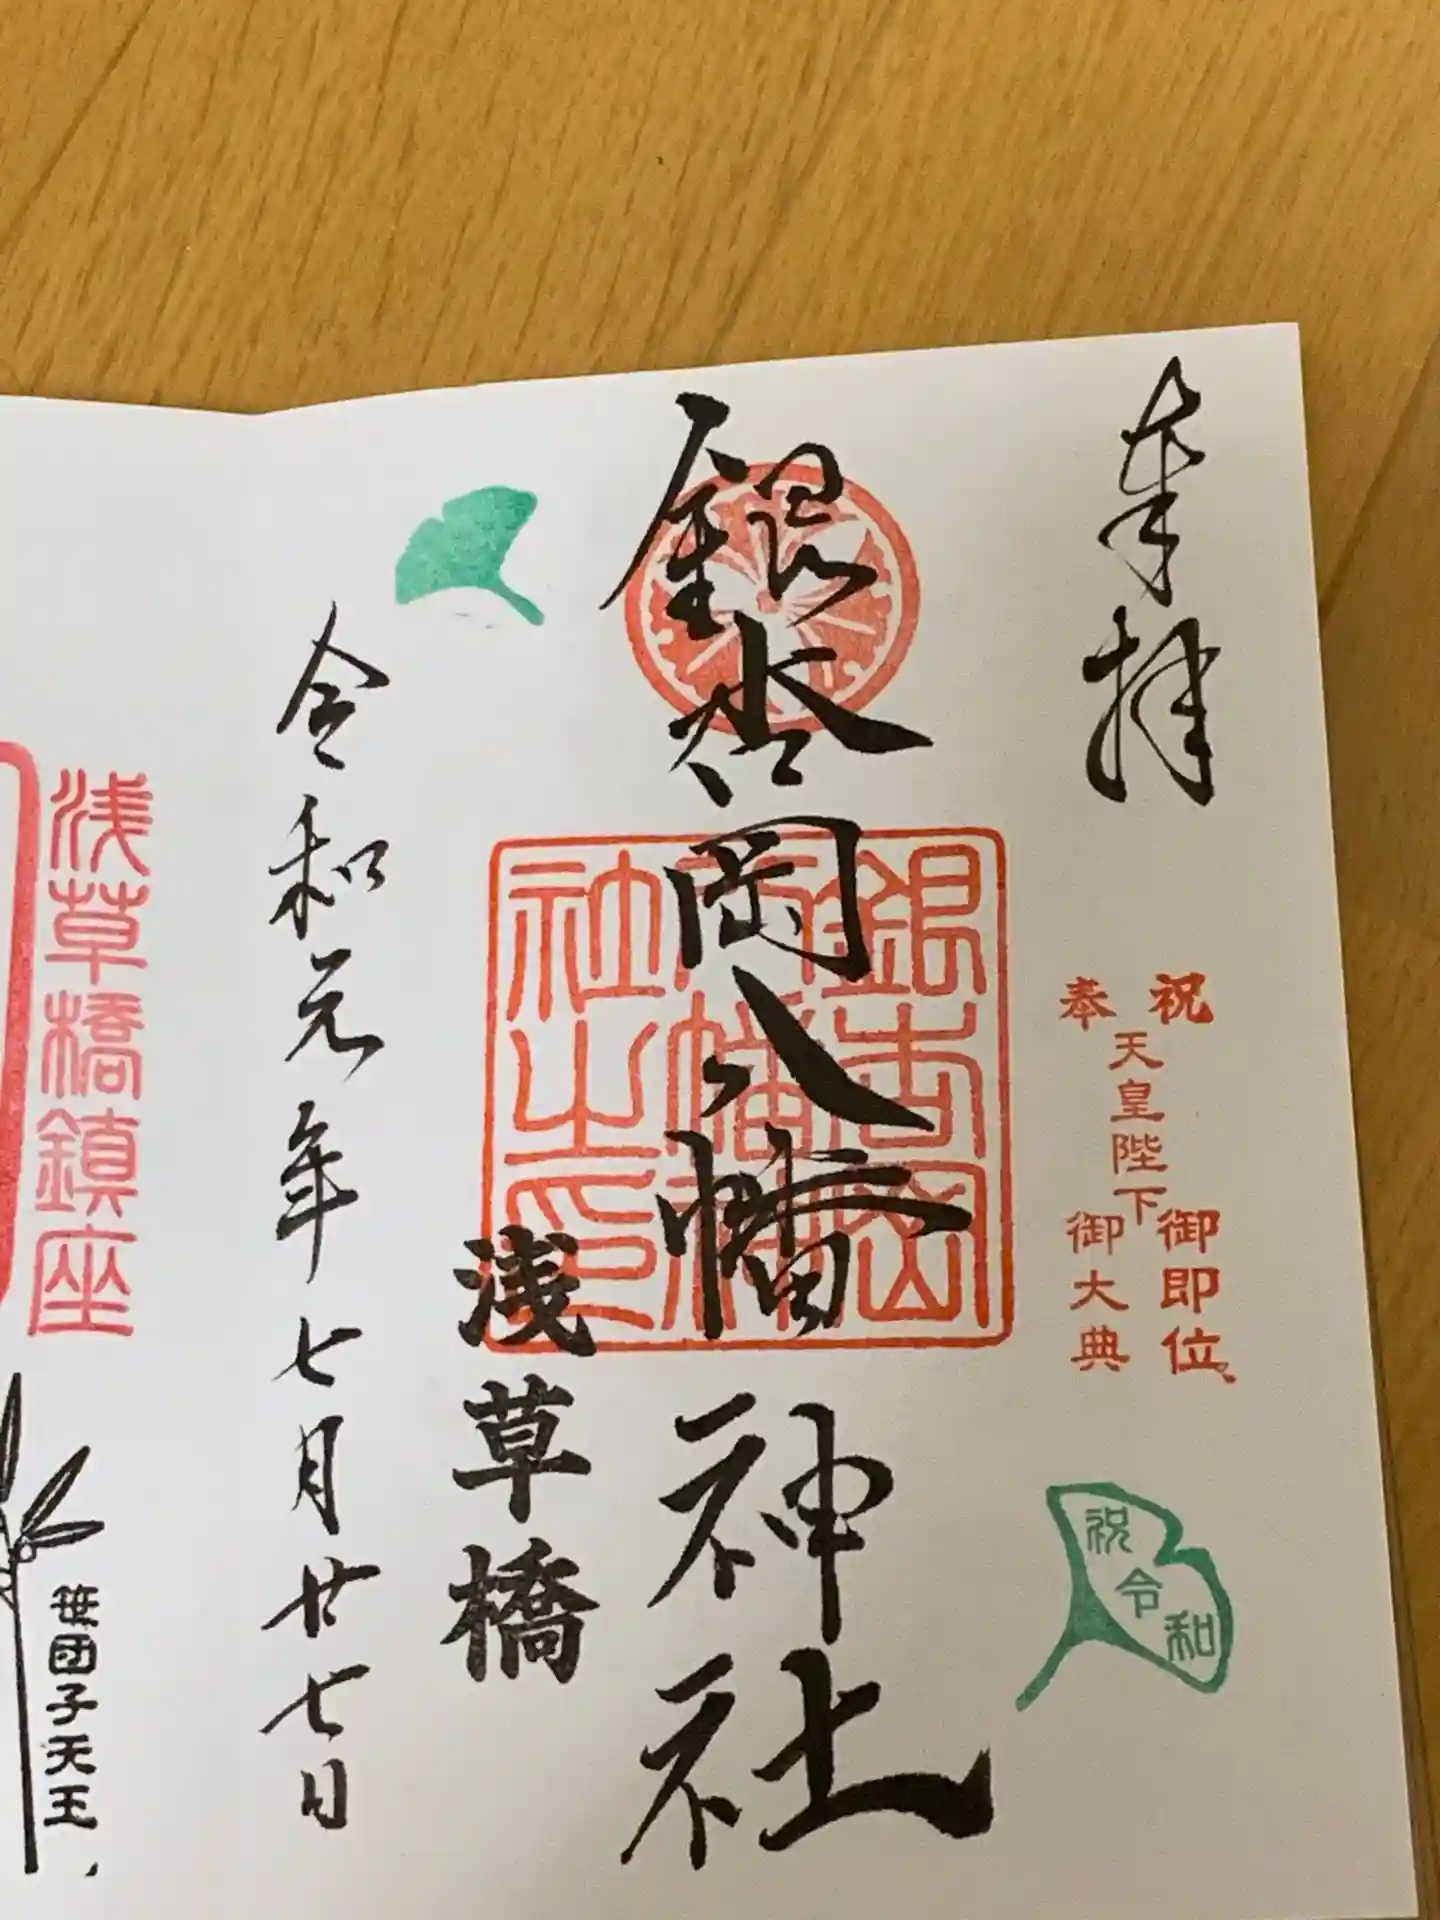 奉拝
奉祝
天皇陛下
御即位
御大典
祝令和
銀杏岡八幡神社
銀杏岡八幡神社之印
浅草橋
令和元年七月廿七日
浅草橋鎮座
笹団子天王